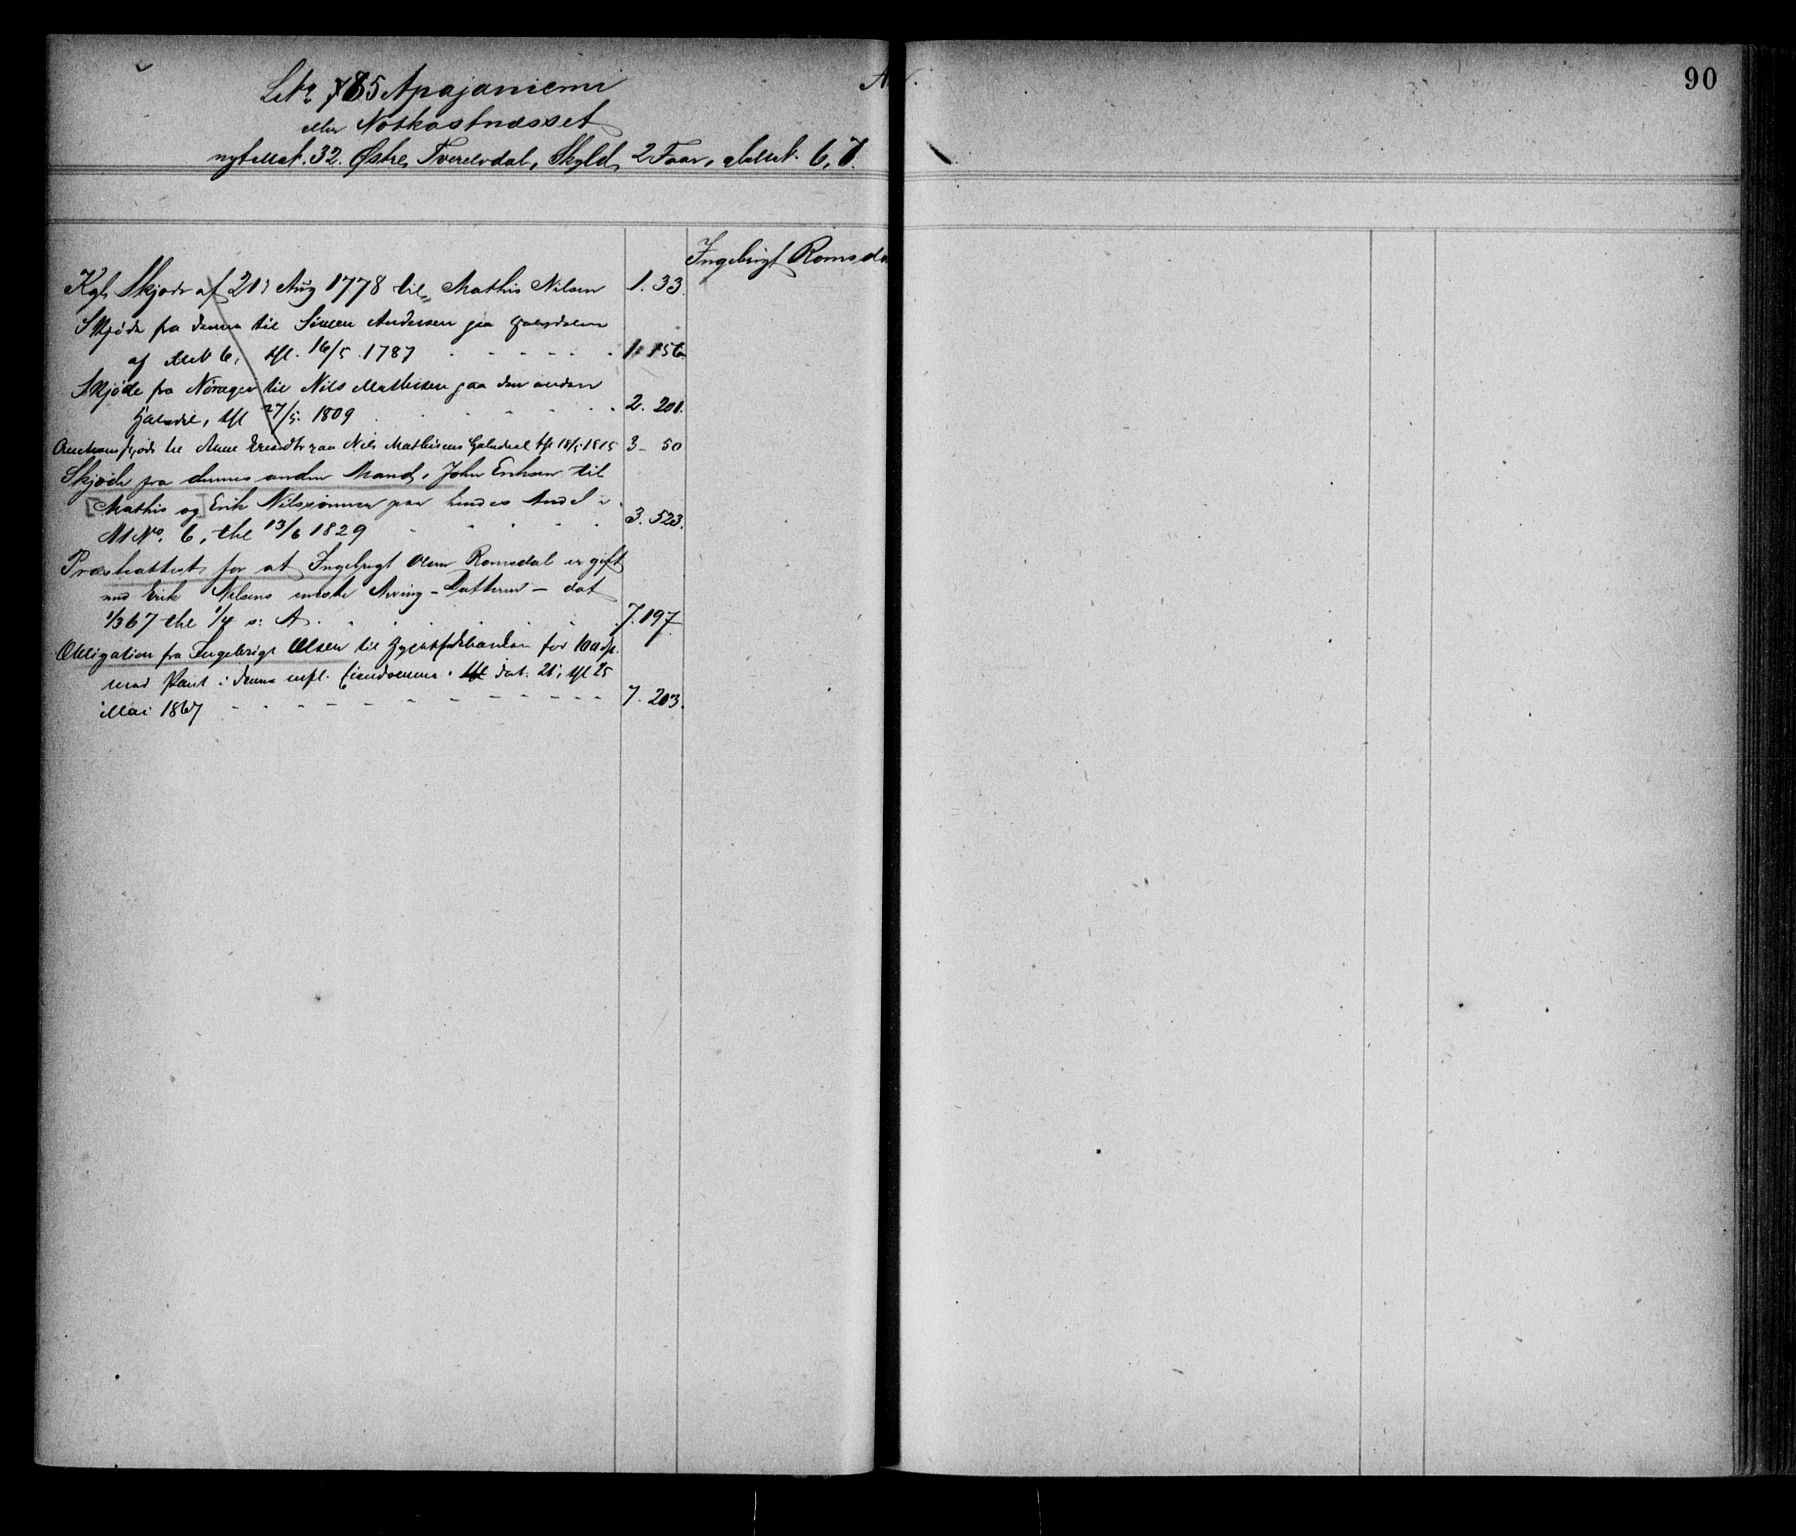 90
Litr 785 Apajaniemi
eller Notkastnæsset
nyt Mat. 32. Østre Tverelvdal, Skyld 2 Faar, gl Mat. 6, 7.
Ingebrigt Romsda
Kgl. Skjøde af 21 Aug 1778 til Mathis Nilsen 1. 33.
Skjøde fra denne til Simen Andersen paa Halvdelen
af MN 6, thl. 16/5 1787 1. 156
Skjøde fra Nørager til Nils Mathisen paa den anden
Halvdel, thl 27/5 1809 2. 201.
Auctionsskjøde til Anne paa Nils Mathisens Halvdeel thl 18/5 1815 3 - 50
Skjøde fra dennes anden Mand, John Eriksen til
[Mathis og] Erik Nilssønner paa hendes Andel i
M No. 6, thl 13/6 1829 3. 523.
Præsteattest for at Ingebrigt Olsen Romsdal er gift
med Erik Nilsens eneste Arving - Datteren - dat
1/3 67 thl 1/4 s: A. 7. 197
Obligation fra Ingebrigt Olsen til for 100 Sp.
med Pant i denne Eiendommen. dat. 21, thl 25
Mai 1867 7. 203.